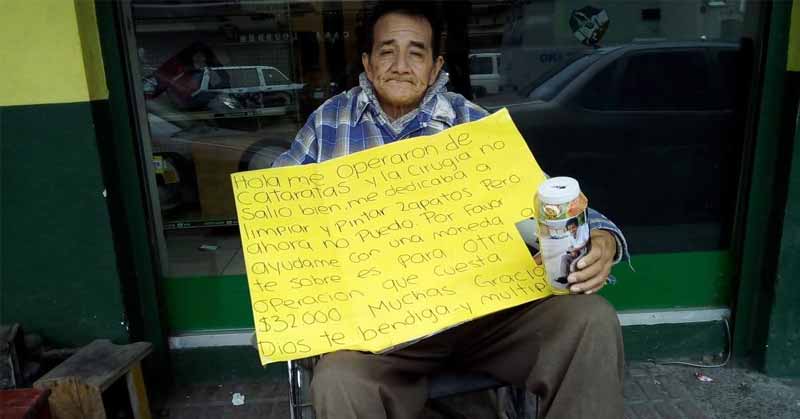 Hola me operaron de
cataratas y la cirugia no
salio bien. me dedicaba a
limpiar y pintar zapatos Pero
ahora no Puedo. Por Favor
ayudame con una moneda q
te sobre es para otra
operacion que cuesta
$32000 Muchas Gracia
Dios te bendiga y multip